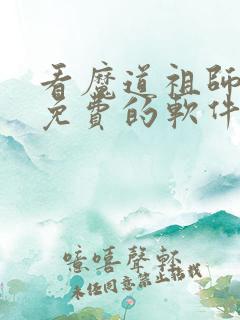 看魔道祖師
免費的軟件
噫嘻聲軒
未任同意禁止搭載